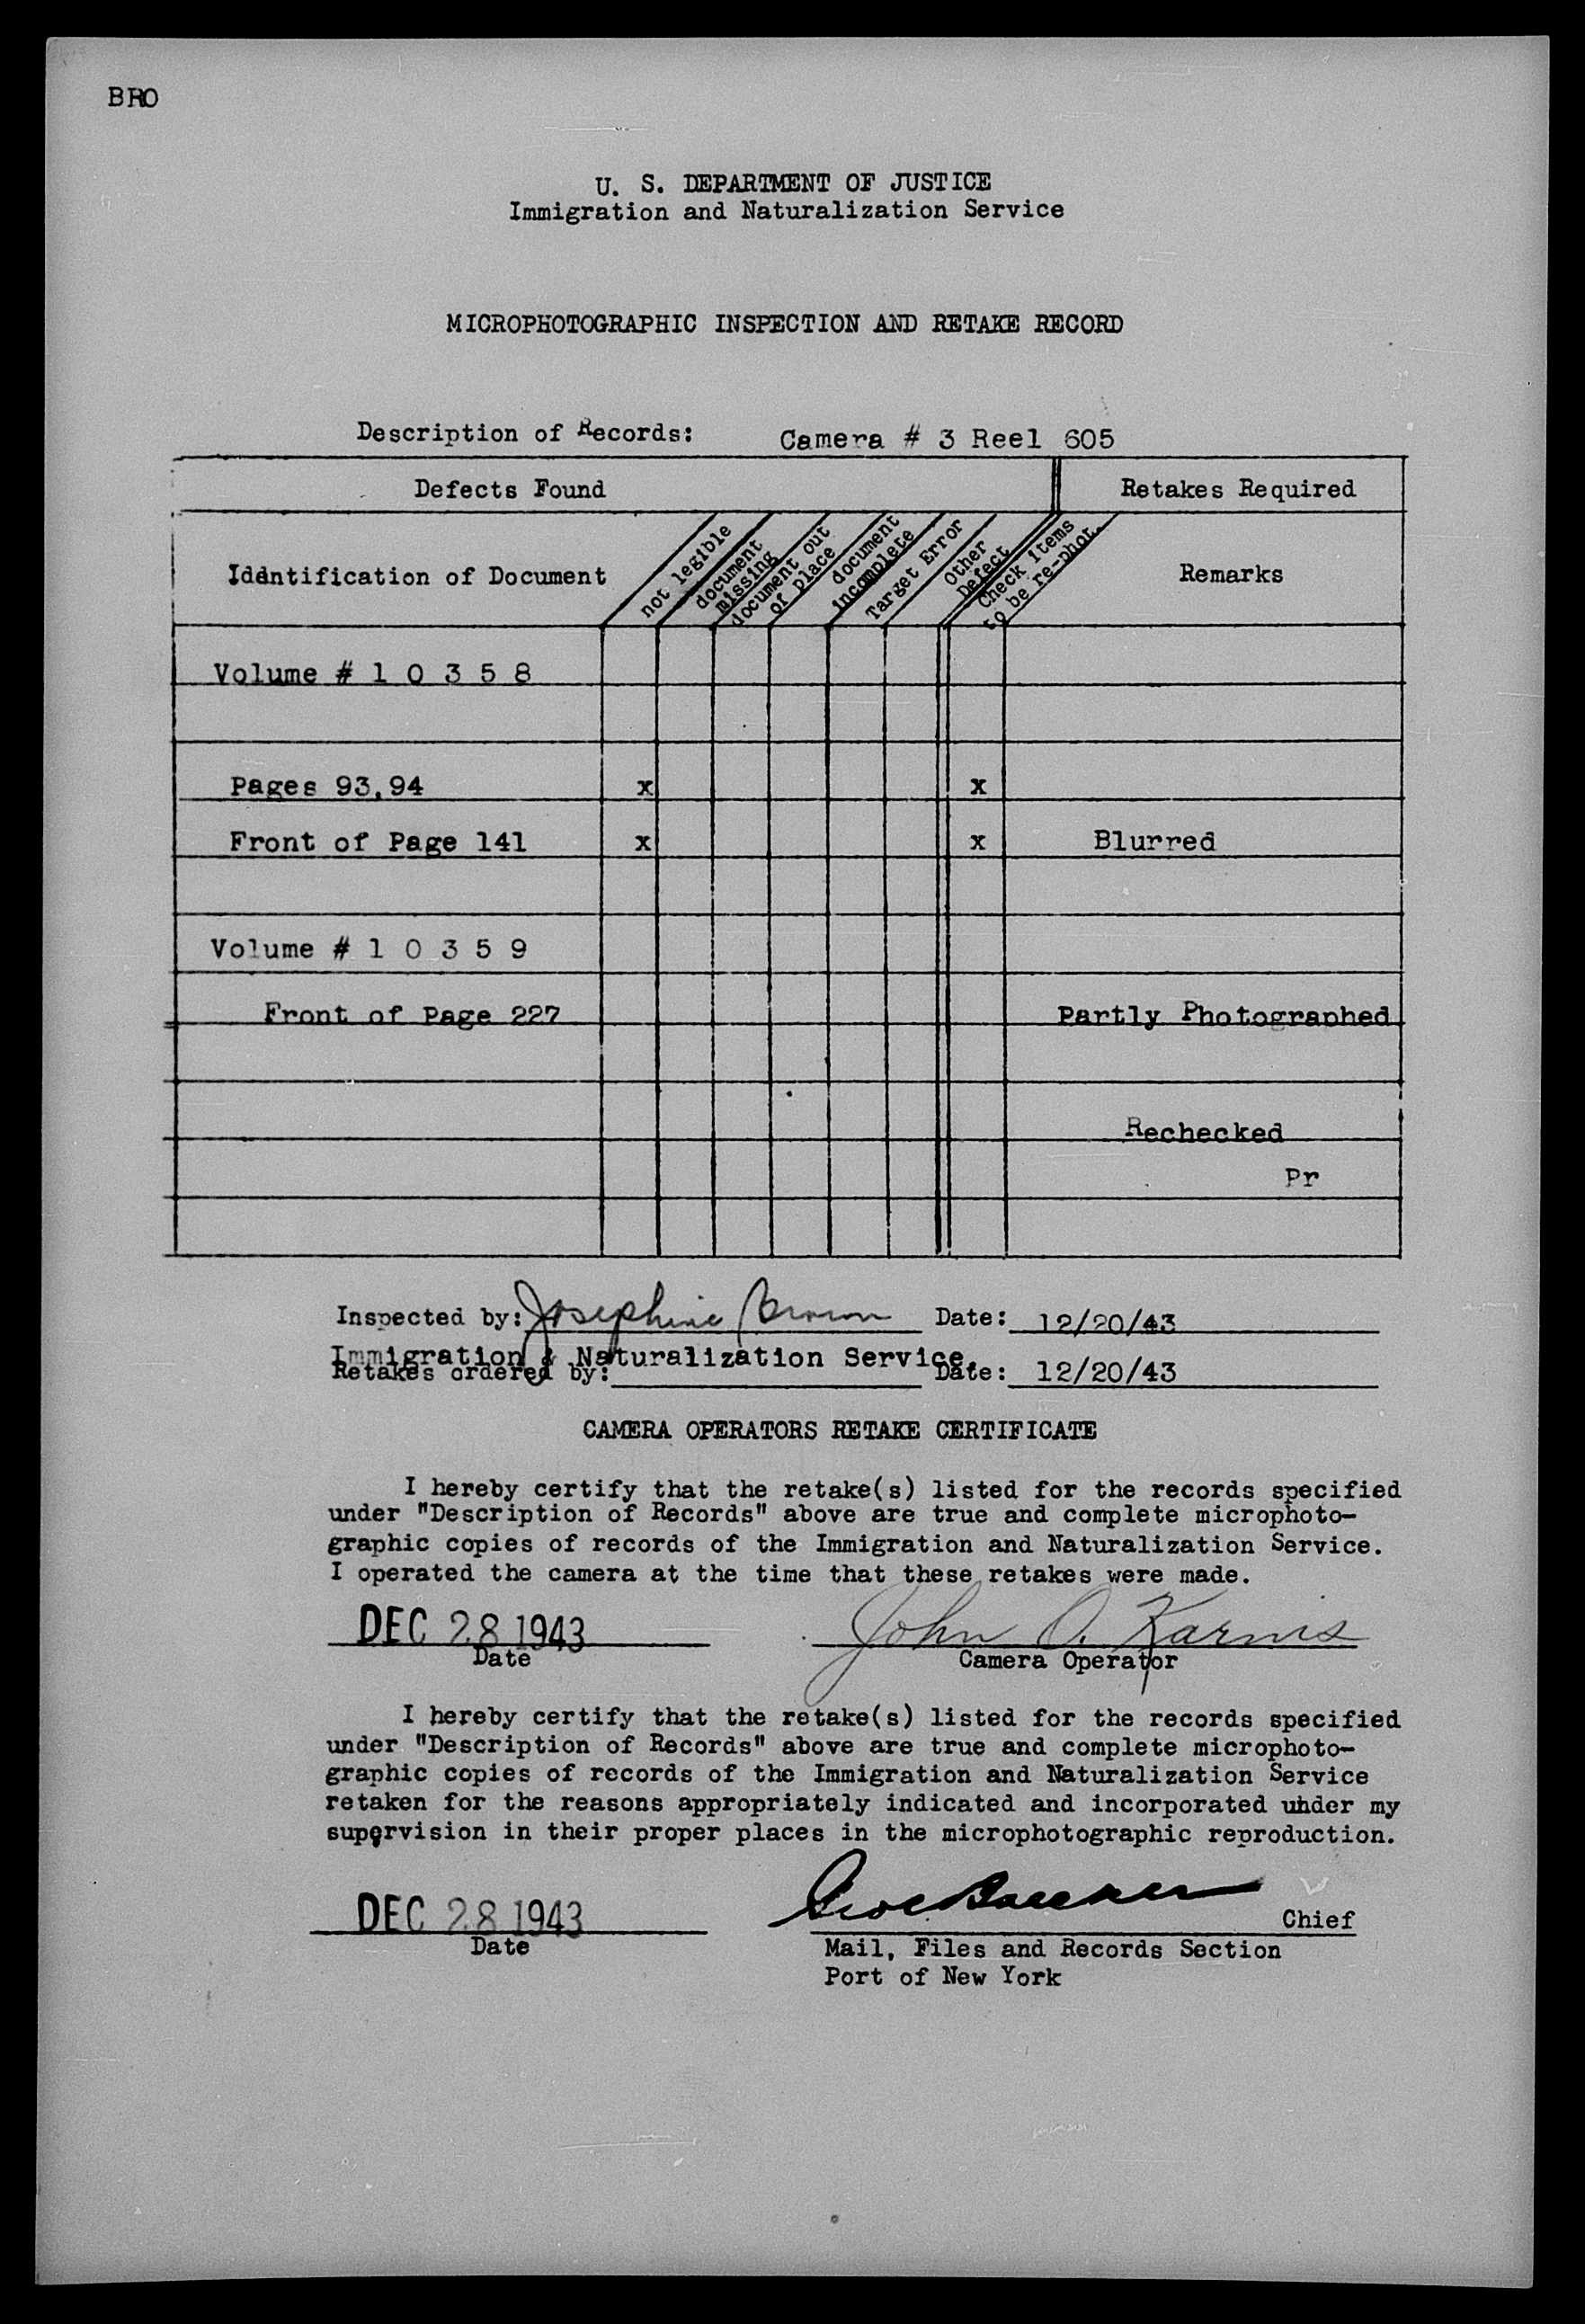 BRO
U. S. DEPARTMENT OF JUSTICE
Immigration and Naturalization Service
MICROPHOTOGRAPHIC INSPECTION AND RETAKE RECORD
Description of Records: Camera # 3 Reel 605
Defects Found Retakes Required
Identification of Document
not legible
document
missing
document out
of place
document
incomplete
Target Error
Other
Defect
Check items
to be re-phot.
Remarks
Volume # 1 0 3 5 8
Pages 93,94 x x
Front of Page 141 x x Blurred
Volume # 1 0 3 5 9
Front of Page 227 Partly Photographed
Rechecked
Pr
Inspected by: Josephine Brown Date: 12/20/43
Immigration & Naturalization Service.
Retakes ordered by: Date: 12/20/43
CAMERA OPERATORS RETAKE CERTIFICATE
I hereby certify that the retake(s) listed for the records specified
under "Description of Records" above are true and complete microphoto-
graphic copies of records of the Immigration and Naturalization Service.
I operated the camera at the time that these retakes were made.
DEC 28 1943 John O. Karnis
Date Camera Operator
I hereby certify that the retake(s) listed for the records specified
under "Description of Records" above are true and complete microphoto-
graphic copies of records of the Immigration and Naturalization Service
retaken for the reasons appropriately indicated and incorporated under my
supervision in their proper places in the microphotographic reproduction.
DEC 28 1943 Chief
Date Mail, Files and Records Section
Port of New York